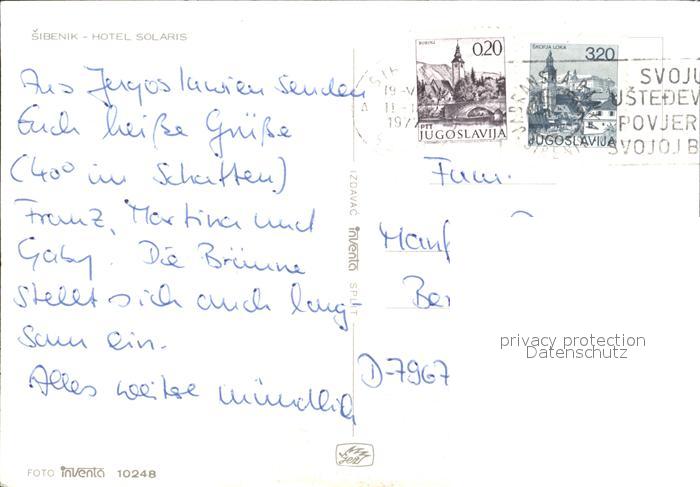 ŠIBENIK - HOTEL SOLARIS
Aus Jugoslawien senden
Euch heiße Grüße
(40° im Schatten)
Franz, Martina und
Gaby. Die Bräune
stellt sich auch lang-
sam ein.
Alles weitere mündlich
FOTO inventa 10248
IZDAVAČ inventa SPLIT
BOHINJ
0,20
PTT
JUGOSLAVIJA
ŠKOFJA LOKA
3,20
JUGOSLAVIJA
SVOJU
UŠTEĐEV
POVJER
SVOJOJ B
Fam.
Manf
Ber
D-7967
privacy protection
Datenschutz